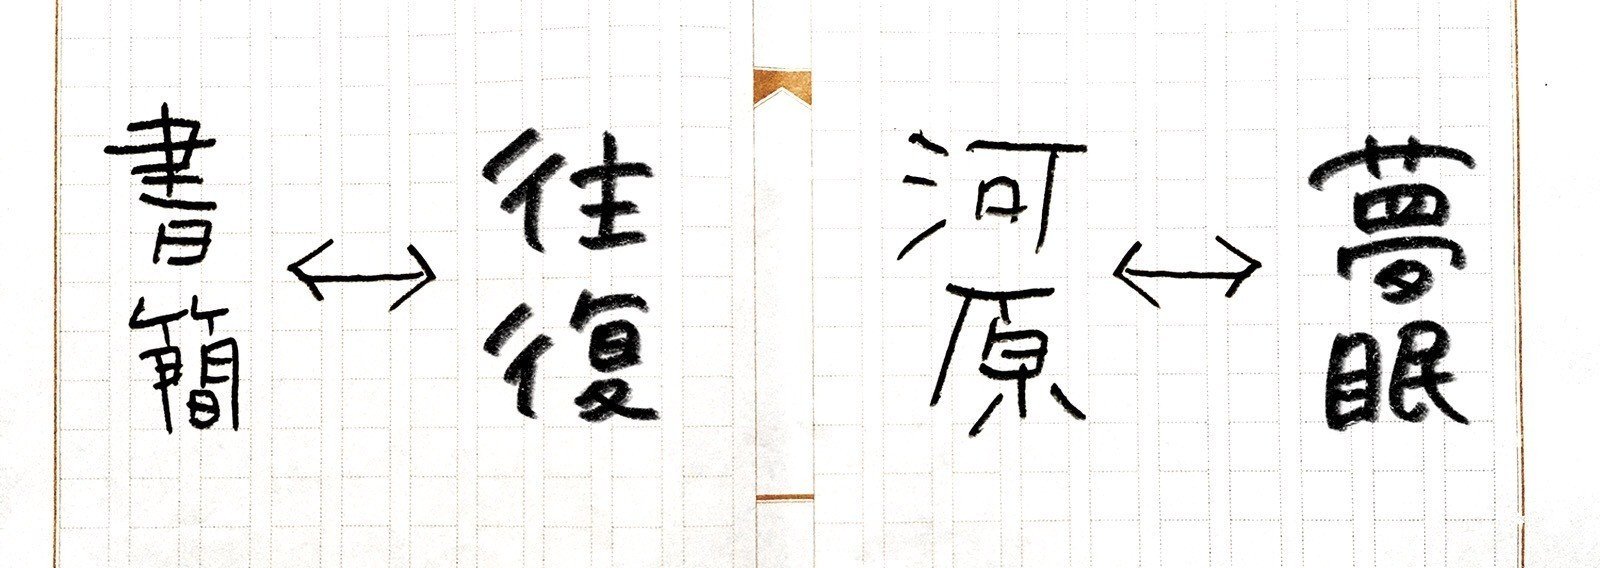 夢眠
↔
河原
往復
↔
書簡